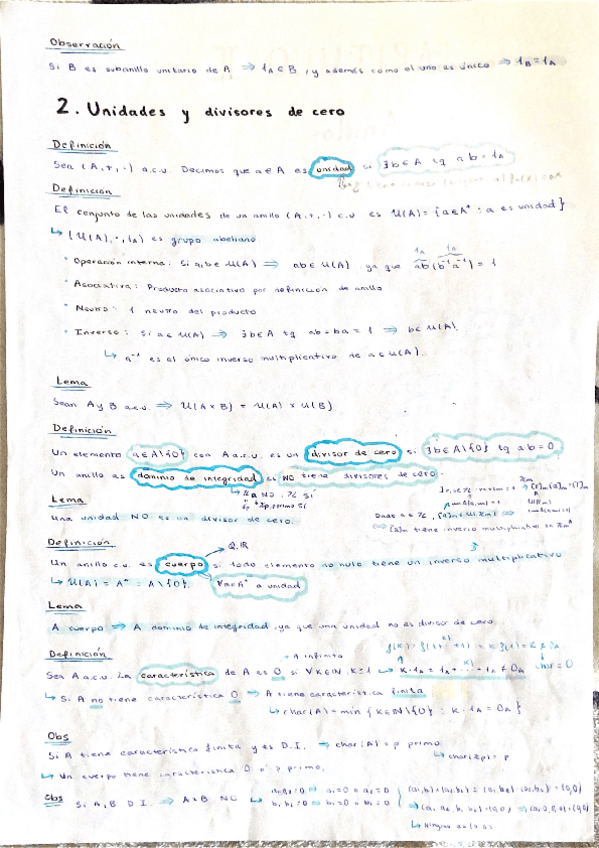 Observación
Si B es subanillo unitario de A ⇒ 1_A ∈ B, y además como el uno es único ⇒ 1_B = 1_A
2. Unidades y divisores de cero
Definición
Sea (A,+,·) a.c.u. Decimos que a∈A es unidad si ∃b∈A tq ab = 1_A
Definición
El conjunto de las unidades de un anillo (A,+,·) c.u es U(A) = {a∈A* : a es unidad}
↳ (U(A),·,1_A) es grupo abeliano
• Operación interna: Si a,b∈U(A) ⇒ ab∈U(A) ya que ab(b⁻¹a⁻¹) = 1
• Asociativa: Producto asociativo por definición de anillo
• Neutro: 1 neutro del producto
• Inverso: Si a∈U(A) ⇒ ∃b∈A tq ab=ba=1 ⇒ b∈U(A).
↳ a⁻¹ es el único inverso multiplicativo de a∈U(A).
Lema
Sean A y B a.c.u. ⇒ U(A×B) = U(A) × U(B)
Definición
Un elemento a∈A\{0} con A a.c.u. es un divisor de cero si ∃b∈A\{0} tq ab=0
Un anillo es dominio de integridad si NO tiene divisores de cero.
Lema
Una unidad NO es un divisor de cero.
⇔ [a]m tiene inverso multiplicativo en
Definición
→ Q, R
Un anillo c.u. es cuerpo si todo elemento no nulo tiene un inverso multiplicativo
↳ U(A) = A* = A\{0}. ∀a∈A* a unidad
Lema
A cuerpo ⇒ A dominio de integridad, ya que una unidad no es divisor de cero
Definición
→ A infinito
Sea A a.c.u. La característica de A es 0 si ∀k∈N, k≥1 ↳ k·1_A = 1_A + ... + 1_A ≠ 0_A char = 0
↳ Si A no tiene característica 0 ⇒ A tiene característica finita
↳ char(A) = min {k∈N\{0} : k·1_A = 0_A}
Obs
Si A tiene característica finita y es D.I. ⇒ char(A) = p primo
↳ Un cuerpo tiene característica 0 o p primo.
Obs Si A,B D.I. ⇒ A×B NO